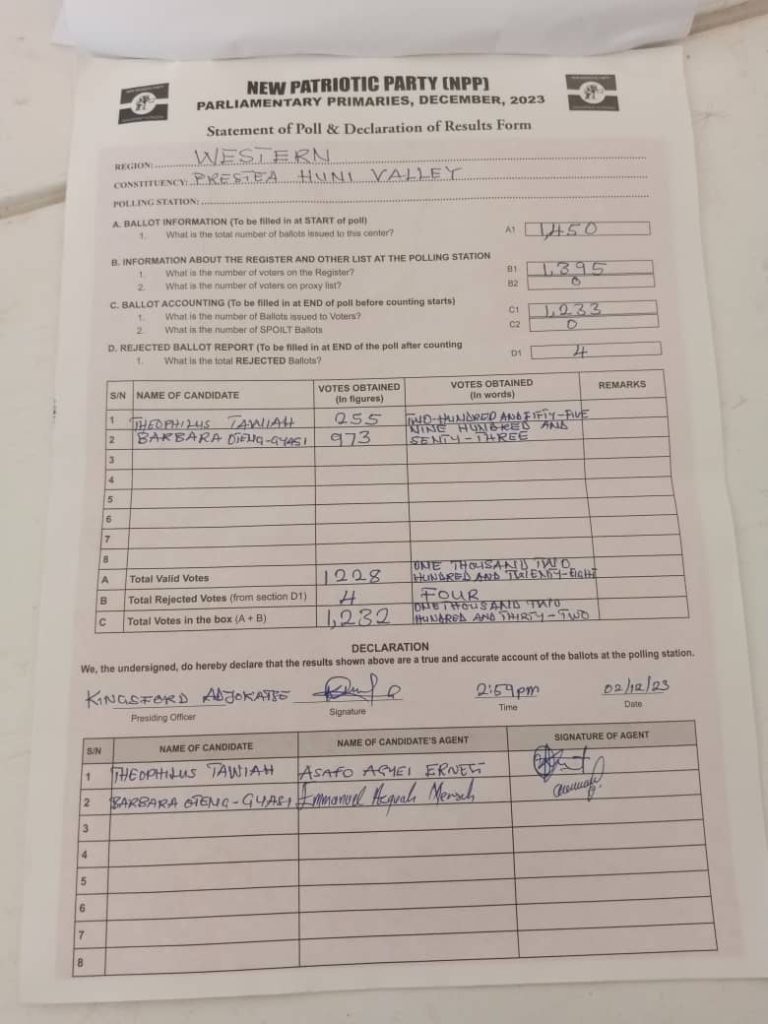 NEW PATRIOTIC PARTY (NPP)
PARLIAMENTARY PRIMARIES, DECEMBER, 2023
Statement of Poll & Declaration of Results Form
REGION: WESTERN
CONSTITUENCY: PRESTEA HUNI VALLEY
POLLING STATION:
A. BALLOT INFORMATION (To be filled in at START of poll)
1. What is the total number of ballots issued to this center? A1 1,450
B. INFORMATION ABOUT THE REGISTER AND OTHER LIST AT THE POLLING STATION
1. What is the number of voters on the Register? B1 1,395
2. What is the number of voters on proxy list? B2 0
C. BALLOT ACCOUNTING (To be filled in at END of poll before counting starts)
1. What is the number of Ballots issued to Voters? C1 1,233
2. What is the number of SPOILT Ballots C2 0
D. REJECTED BALLOT REPORT (To be filled in at END of the poll after counting
1. What is the total REJECTED Ballots? D1 4
S/N NAME OF CANDIDATE VOTES OBTAINED (In figures) VOTES OBTAINED (In words) REMARKS
1 THEOPHILUS TAWIAH 255 TWO-HUNDRED AND FIFTY-FIVE
2 BARBARA OTENG-GYASI 973 NINE HUNDRED AND SENTY-THREE
3
4
5
6
7
8
A Total Valid Votes 1228 ONE THOUSAND TWO HUNDRED AND TWENTY-EIGHT
B Total Rejected Votes (from section D1) 4 FOUR
C Total Votes in the box (A + B) 1,232 ONE THOUSAND TWO HUNDRED AND THIRTY-TWO
DECLARATION
We, the undersigned, do hereby declare that the results shown above are a true and accurate account of the ballots at the polling station.
KINGSFORD 2:59pm 02/12/23
Presiding Officer Signature Time Date
S/N NAME OF CANDIDATE NAME OF CANDIDATE'S AGENT SIGNATURE OF AGENT
1 THEOPHILUS TAWIAH ASAFO AGYEI ERNEST
2 BARBARA OTENG-GYASI Emmanuel Acquah Mensah
3
4
5
6
7
8